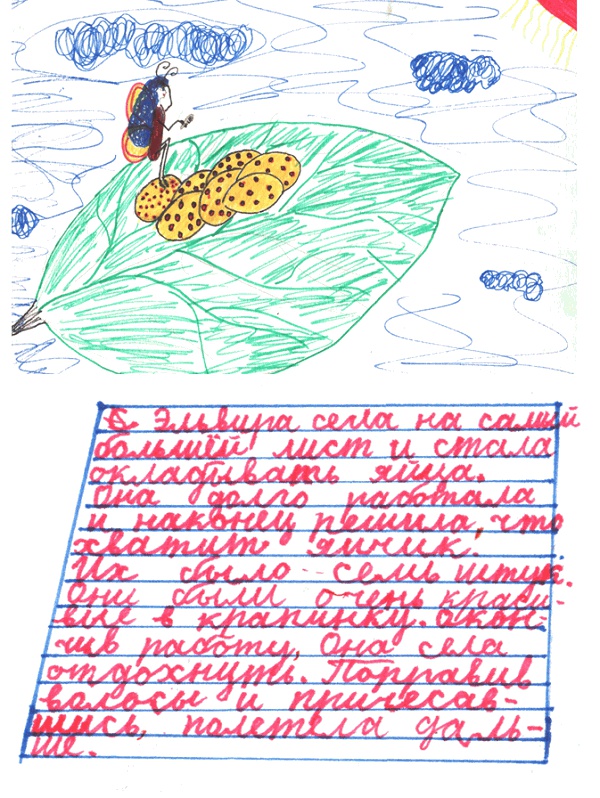 Эльвира села на самый
большёй лист и стала
окладывать яйца.
Она долго работала
и наконец решила, что
хватит яичик.
Их было семь штук.
Они были очень краси-
вые в крапинку. Окон-
чив работу, Она села
отдохнуть. Поправив
волосы и причесав-
шись, полетела даль-
ше.